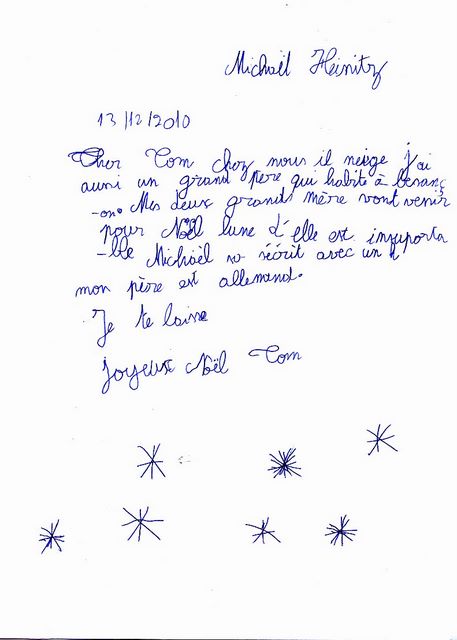 Michaël Heinitz
13/12/2010
Cher Tom chez nous il neige j'ai
aussi un grand père qui habite à besanç
-on. Mes deux grands mère vont venir
pour Noël lune d'elle est insuporta
-ble Michaël s'écrit avec un h
mon père est allemand.
Je te laisse
joyeux Noël Tom